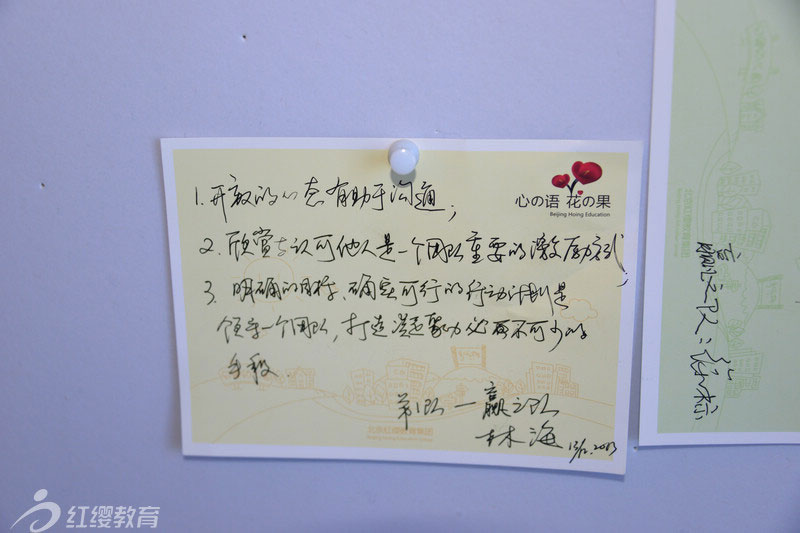 心の语 花の果
Beijing Hoing Education
1. 开放的心态有助于沟通;
2. 欣赏与认可他人是一个团队重要的激励方式;
3. 明确的目标、确实可行的行动计划是
领导一个团队,打造凝聚力必不可少的
手段.
第1队—赢之队
林海 13/12.2013
北京红缨教育集团
Beijing Hoing Education Group
之队:
红缨教育